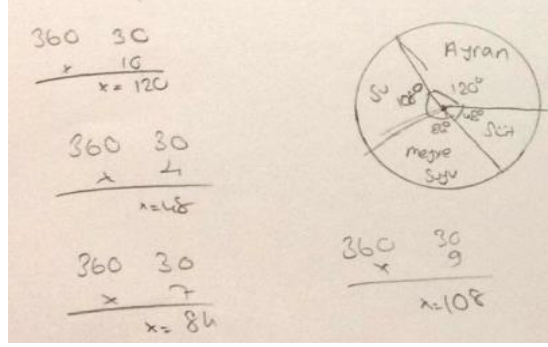 360 30
x 10
x = 120
360 30
x 4
x=48
360 30
x 7
x = 84
Ayran
120°
Su
108°
48°
Süt
84°
meyve
Suyu
360 30
x 9
x=108